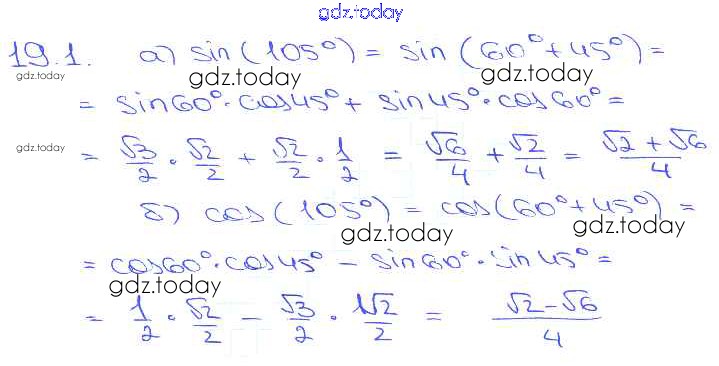 gdz.today
19.1. а) sin(105°) = sin(60° + 45°) =
gdz.today gdz.today gdz.today
= sin60° · cos45° + sin45° · cos60° =
gdz.today
= √3/2 · √2/2 + √2/2 · 1/2 = √6/4 + √2/4 = (√2 + √6)/4
б) cos(105°) = cos(60° + 45°) =
gdz.today gdz.today
= cos60° · cos45° − sin60° · sin45° =
gdz.today
= 1/2 · √2/2 − √3/2 · √2/2 = (√2 − √6)/4